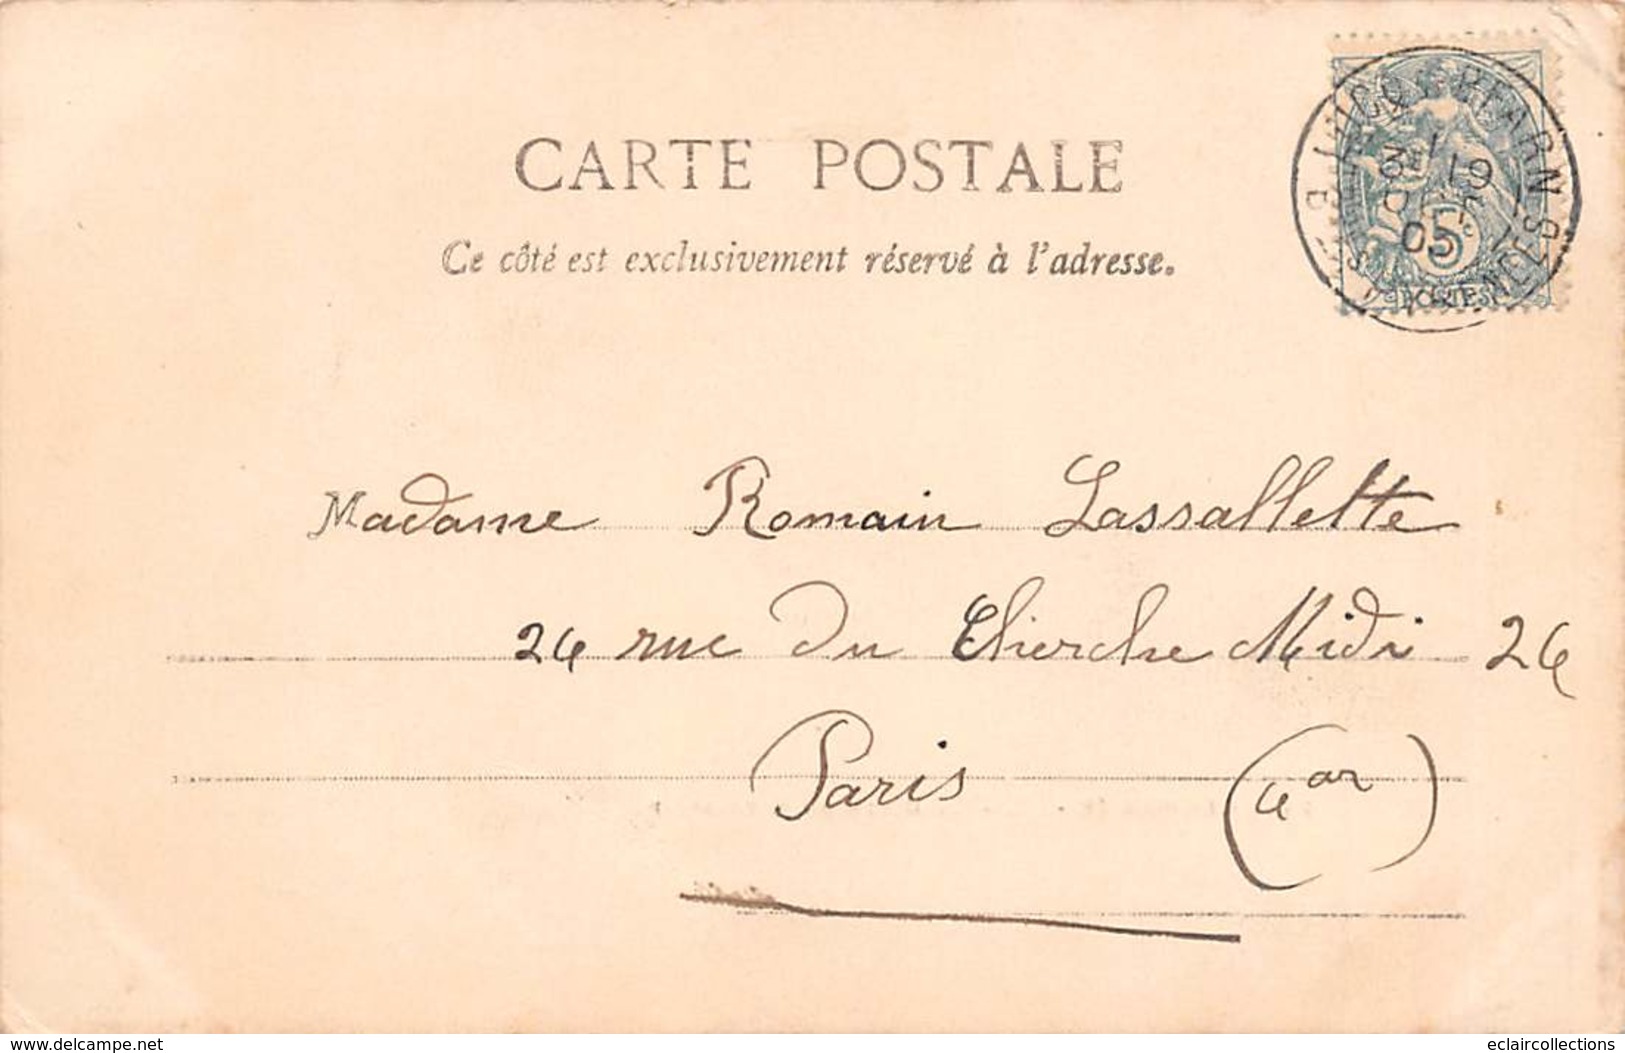 CARTE POSTALE
Ce côté est exclusivement réservé à l'adresse.
BEARN
19
05
5
POSTES
Madame Romain Lassallette
26 rue du Cherche Midi 26
Paris (6 ar)
delcampe.net
eclaircollections